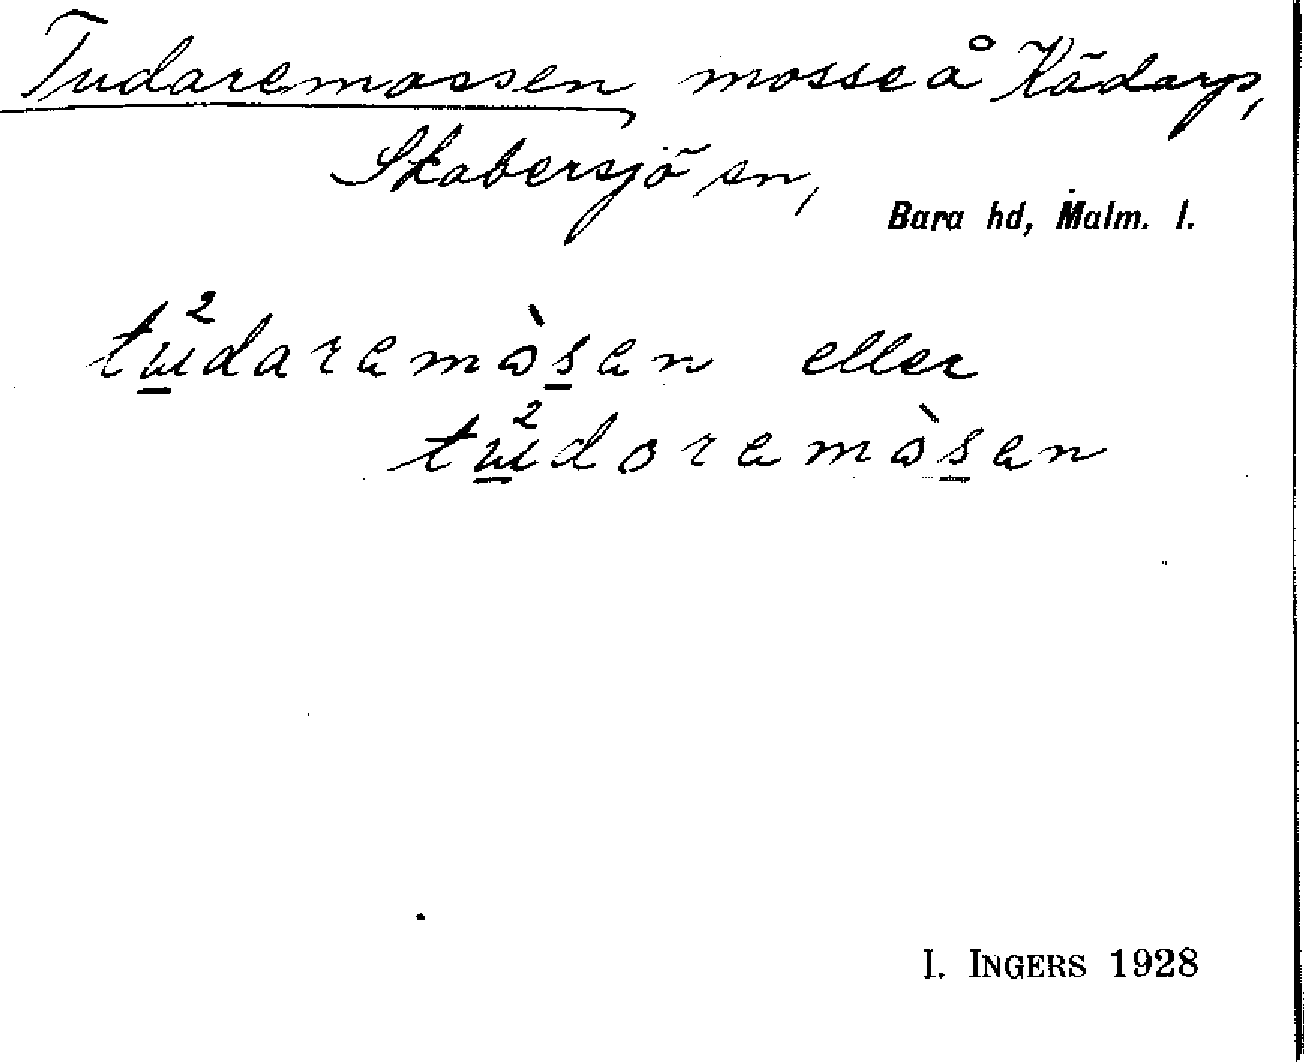 Tudaremossen mosse å Kädarp,
Skabersjö sn,
Bara hd, Malm. l.
tɯ²daramòsan eller
tɯ²doramòsan
I. INGERS 1928